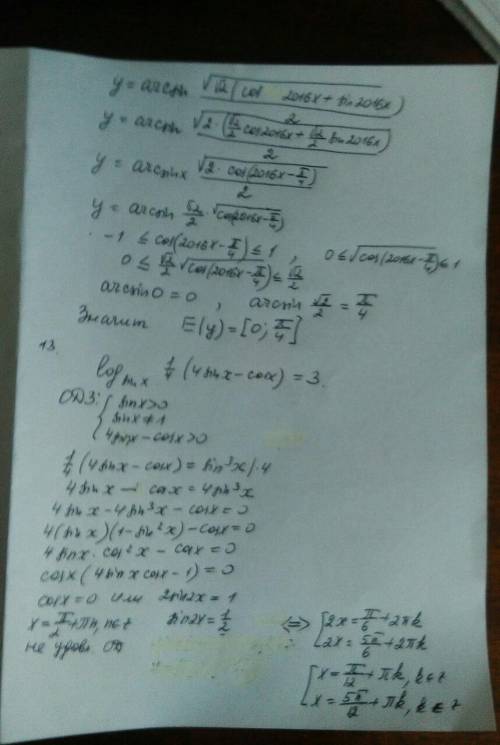 y = arcsin √(√2(cos 2016x + sin 2016x))/2
y = arcsin √(2·(√2/2 cos2016x + √2/2 sin2016x))/2
y = arcsin √(2·cos(2016x − π/4))/2
y = arcsin √2/2 · √(cos(2016x − π/4))
-1 ≤ cos(2016x − π/4) ≤ 1, 0 ≤ √(cos(2016x − π/4)) ≤ 1
0 ≤ √2/2 √(cos(2016x − π/4)) ≤ √2/2
arcsin 0 = 0, arcsin √2/2 = π/4
Значит E(y) = [0; π/4]
13.
log_sinx 1/4 (4sinx − cosx) = 3.
ОДЗ: { sinx > 0
sinx ≠ 1
4sinx − cosx > 0
1/4 (4sinx − cosx) = sin³x |·4
4sinx − cosx = 4sin³x
4sinx − 4sin³x − cosx = 0
4(sinx)(1 − sin²x) − cosx = 0
4sinx · cos²x − cosx = 0
cosx (4sinx cosx − 1) = 0
cosx = 0 или 2sin2x = 1
x = π/2 + πn, n∈z sin2x = 1/2 ⇔ [ 2x = π/6 + 2πk
2x = 5π/6 + 2πk
не удовл. ОД
[ x = π/12 + πk, k∈z
x = 5π/12 + πk, k∈z